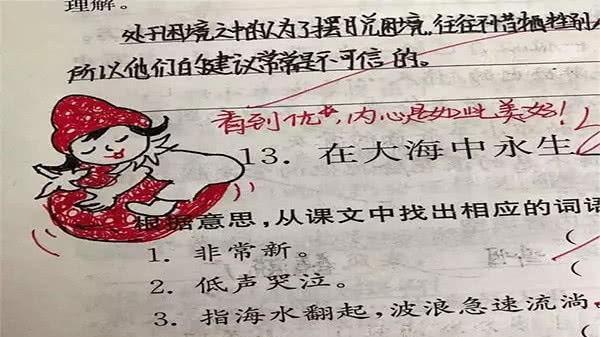 理解。
处于困境之中的人为了摆脱困境,往往不惜牺牲别人
所以他们的建议常常是不可信的。
看到优*,内心是如此美好!
13. 在大海中永生
根据意思,从课文中找出相应的词语
1. 非常新。 (
2. 低声哭泣。 (
3. 指海水翻起,波浪急速流淌。